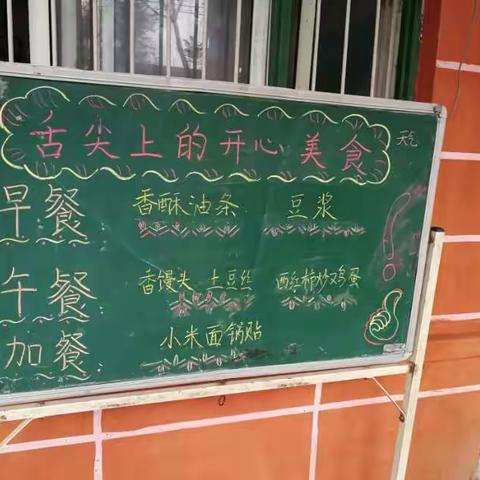 舌尖上的开心美食
早餐 香酥油条 豆浆
午餐 香馒头 土豆丝 西红柿炒鸡蛋
加餐 小米面锅贴